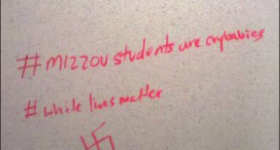 #MIZZOU students are crybabies
# white lives matter